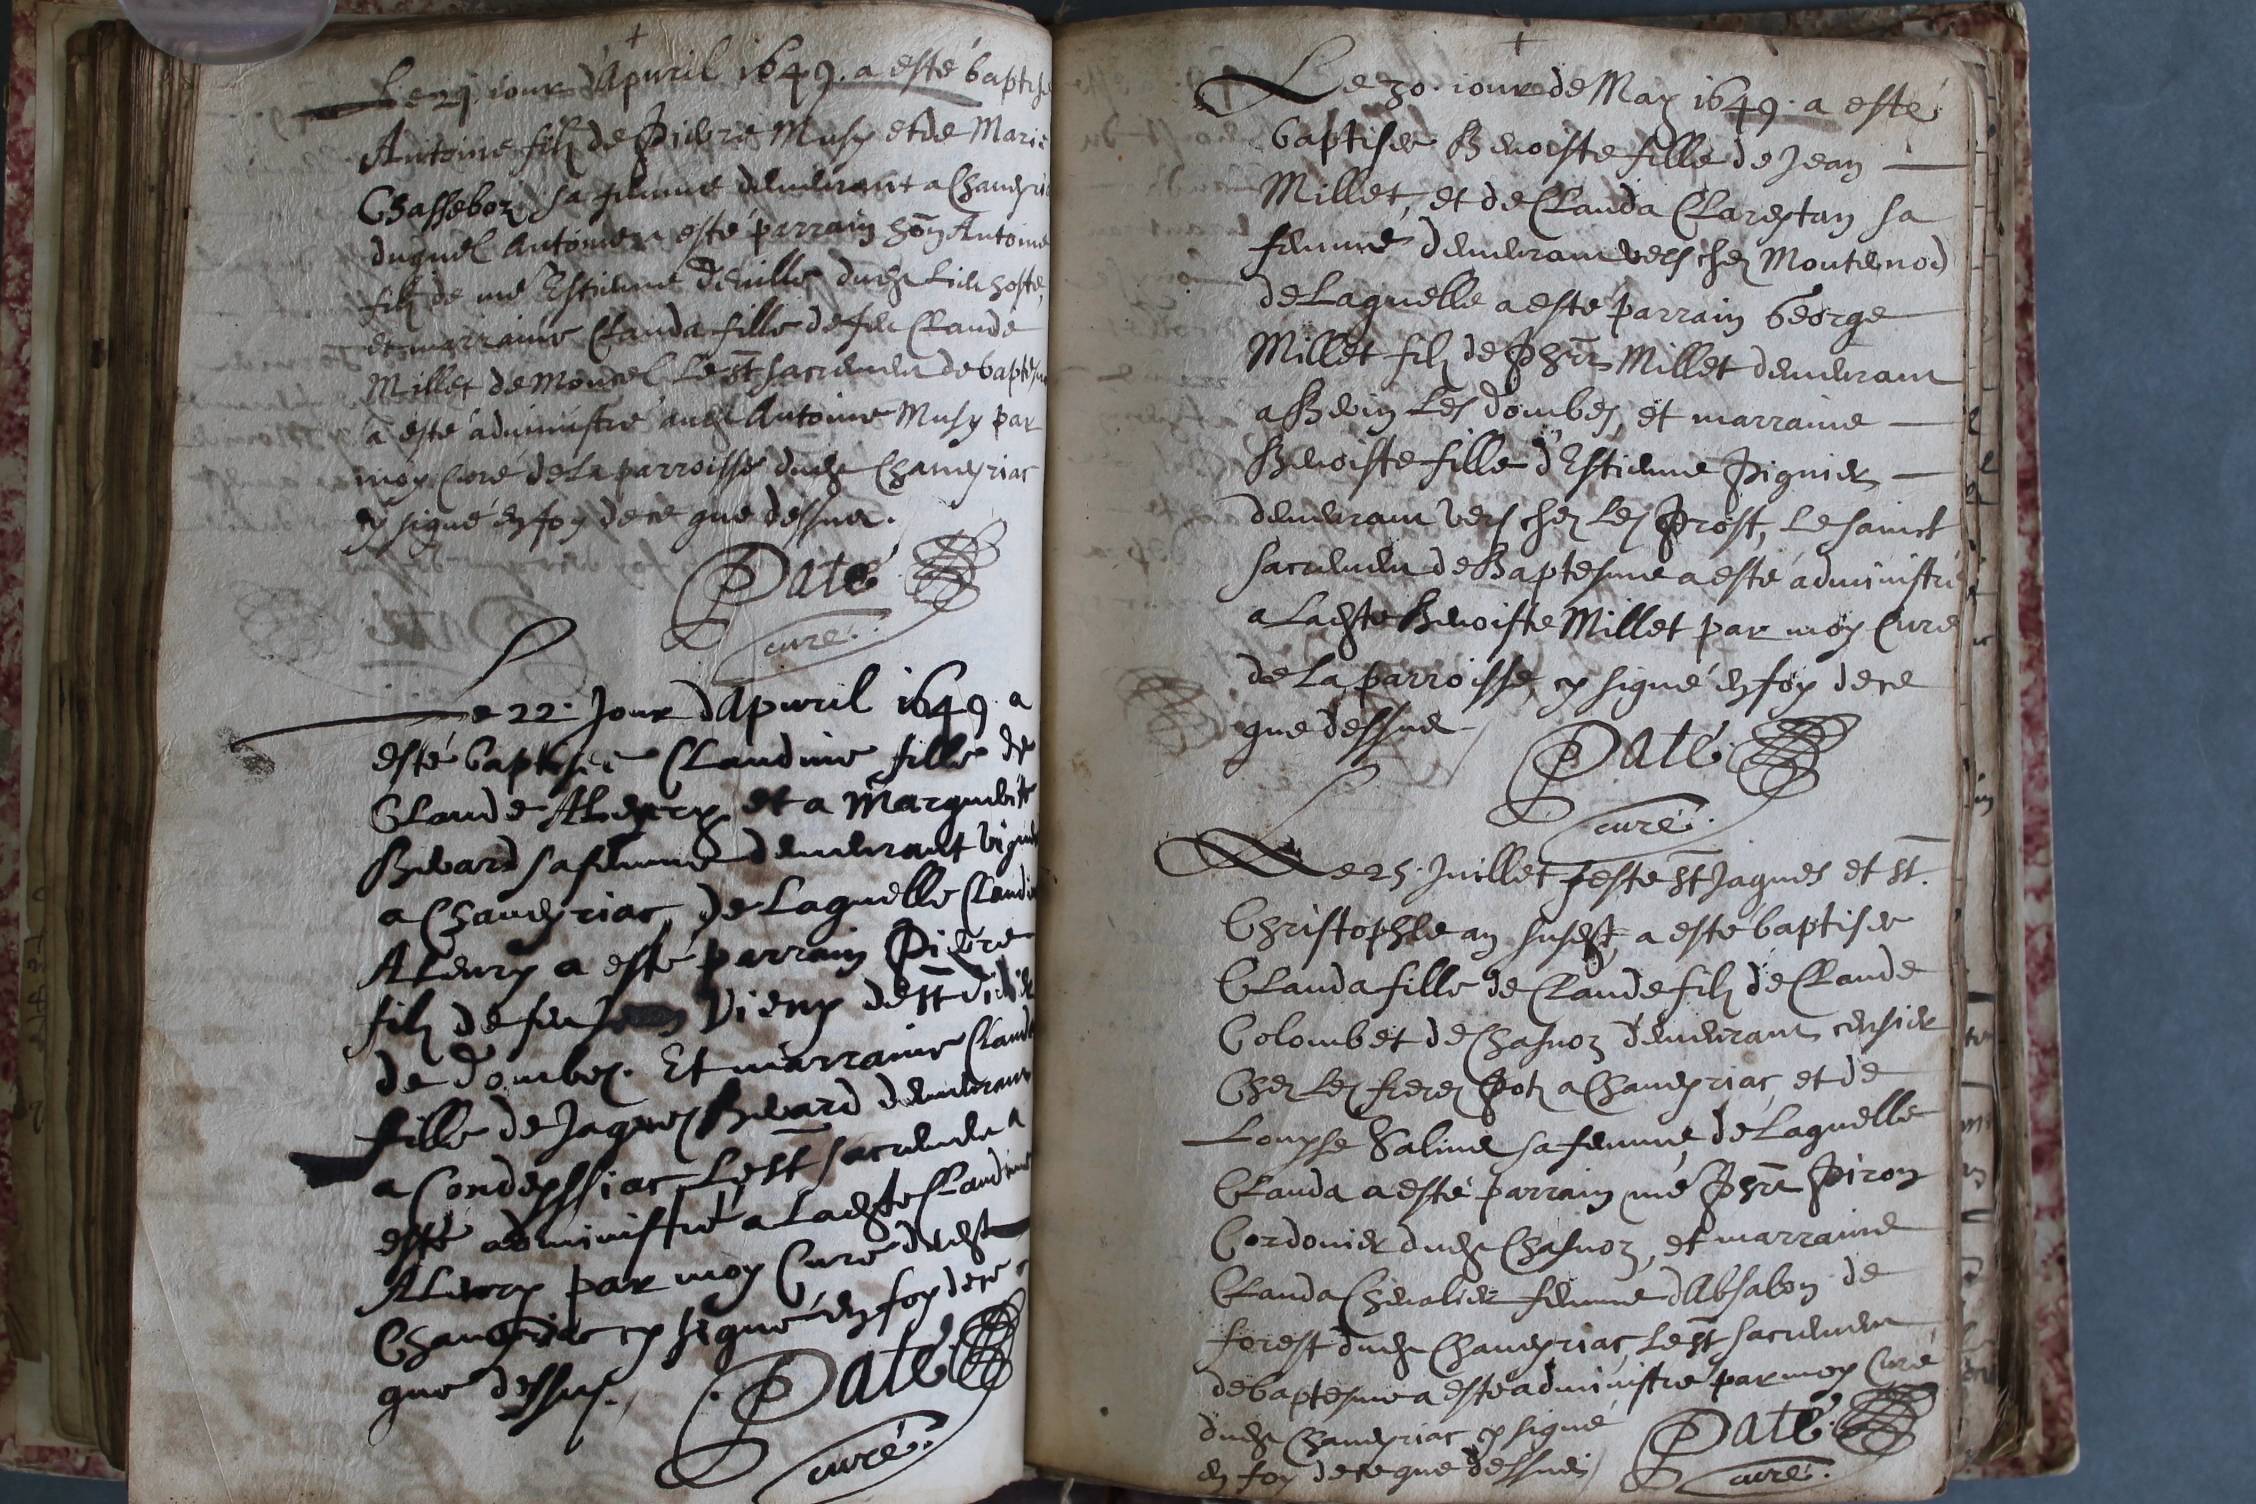 Le 21. jour d'Apvril 1649. a esté baptisé
Antoine filz de Pierre Musy et de Marie
Chasseboz sa femme demeurant a Chaveyriac
duquel Antoine a esté parrain hoñ Antoine
filz de me Estienne Deville dudt Lieu hoste,
et marraine Clauda fille de feu Claude
Millet de Moncel Le st sacrement de baptesme
a esté administré audt Antoine Musy par
moy Curé de la parroisse dudt Chaveyriac
cy signé en foy de ce que dessus.
Daté
curé.
Le 22. Jour d'Apvril 1649. a
esté baptisée Claudine fille de
Claude Alevry et a Marguerite
Bevard sa femme demeurant
a Chaveyriac, de Laquelle Claudine
Alevry a esté parrain Pierre
filz de feu Vieux de st Didier
de Dombes. Et marraine Clauda
fille de Jaques Bevard demeurant
a Condeyssiac Le st sacrement a
esté administré a Ladte Claudine
Alevry par moy Curé dudt
Chaveyriac cy signé en foy de ce
que dessus.
Daté
curé.
Le 30. jour de May 1649. a esté
baptisee Benoiste fille de Jean
Millet, et de Clauda Clareytan sa
femme demeurant vers chez Monternod
de Laquelle a esté parrain George
Millet filz de Phr̃ Millet demeurant
a Les Dombes, et marraine
Benoiste fille d'Estienne Pignier
demeurant vers chez Les Prost, Le sainct
sacrement de Baptesme a esté administré
a Ladte Benoiste Millet par moy Curé
de La parroisse cy signé en foy de ce
que dessus
Daté
curé.
Le 25. Juillet feste st Jaques et st.
Christophle an susdt a esté baptisee
Clauda fille de Claude filz de Claude
Colombet de Chasnoz demeurant censier
Chez Les freres Potz a Chaveyriac, et de
Louyse Saline sa femme, de Laquelle
Clauda a esté parrain me Phr̃ Piroz
Cordonier dudt Chasnoz, et marraine
Clauda Chevalier femme d'Absalon de
forest dudt Chaveyriac, Le st sacrement
de baptesme a esté administré par moy Curé
dudt Chaveyriac cy signé
en foy de ce que dessus
Daté
curé.